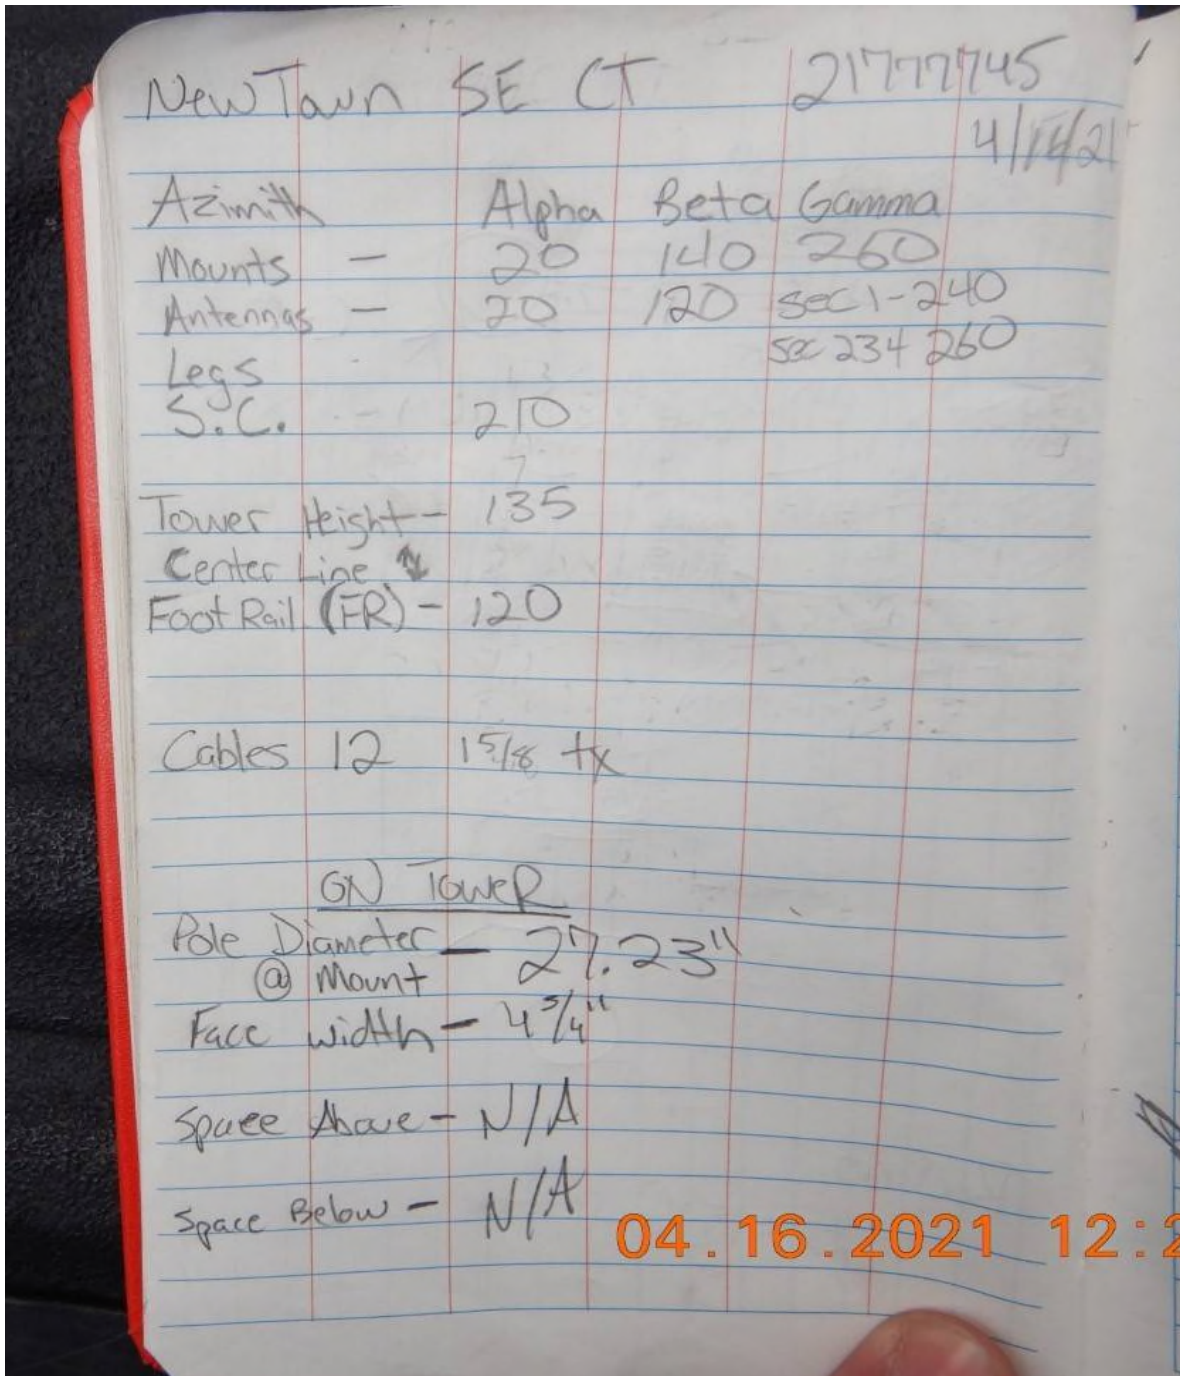 NewTown SE CT 21777745
4/16/21
Azimith Alpha Beta Gamma
Mounts - 20 140 260
Antennas - 20 120 sec 1-240
sec 234 260
Legs
S.C. 210
Tower Height - 135
Center Line
Foot Rail (FR) - 120
Cables 12 1 5/8 tx
ON ToweR
Pole Diameter - 27.23"
@ Mount
Face width - 4 3/4"
Space Above - N/A
Space Below - N/A
04.16.2021 12:2